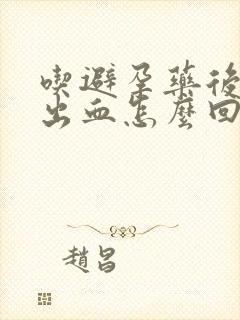 喫避孕藥後
出血怎麼回
趙昌